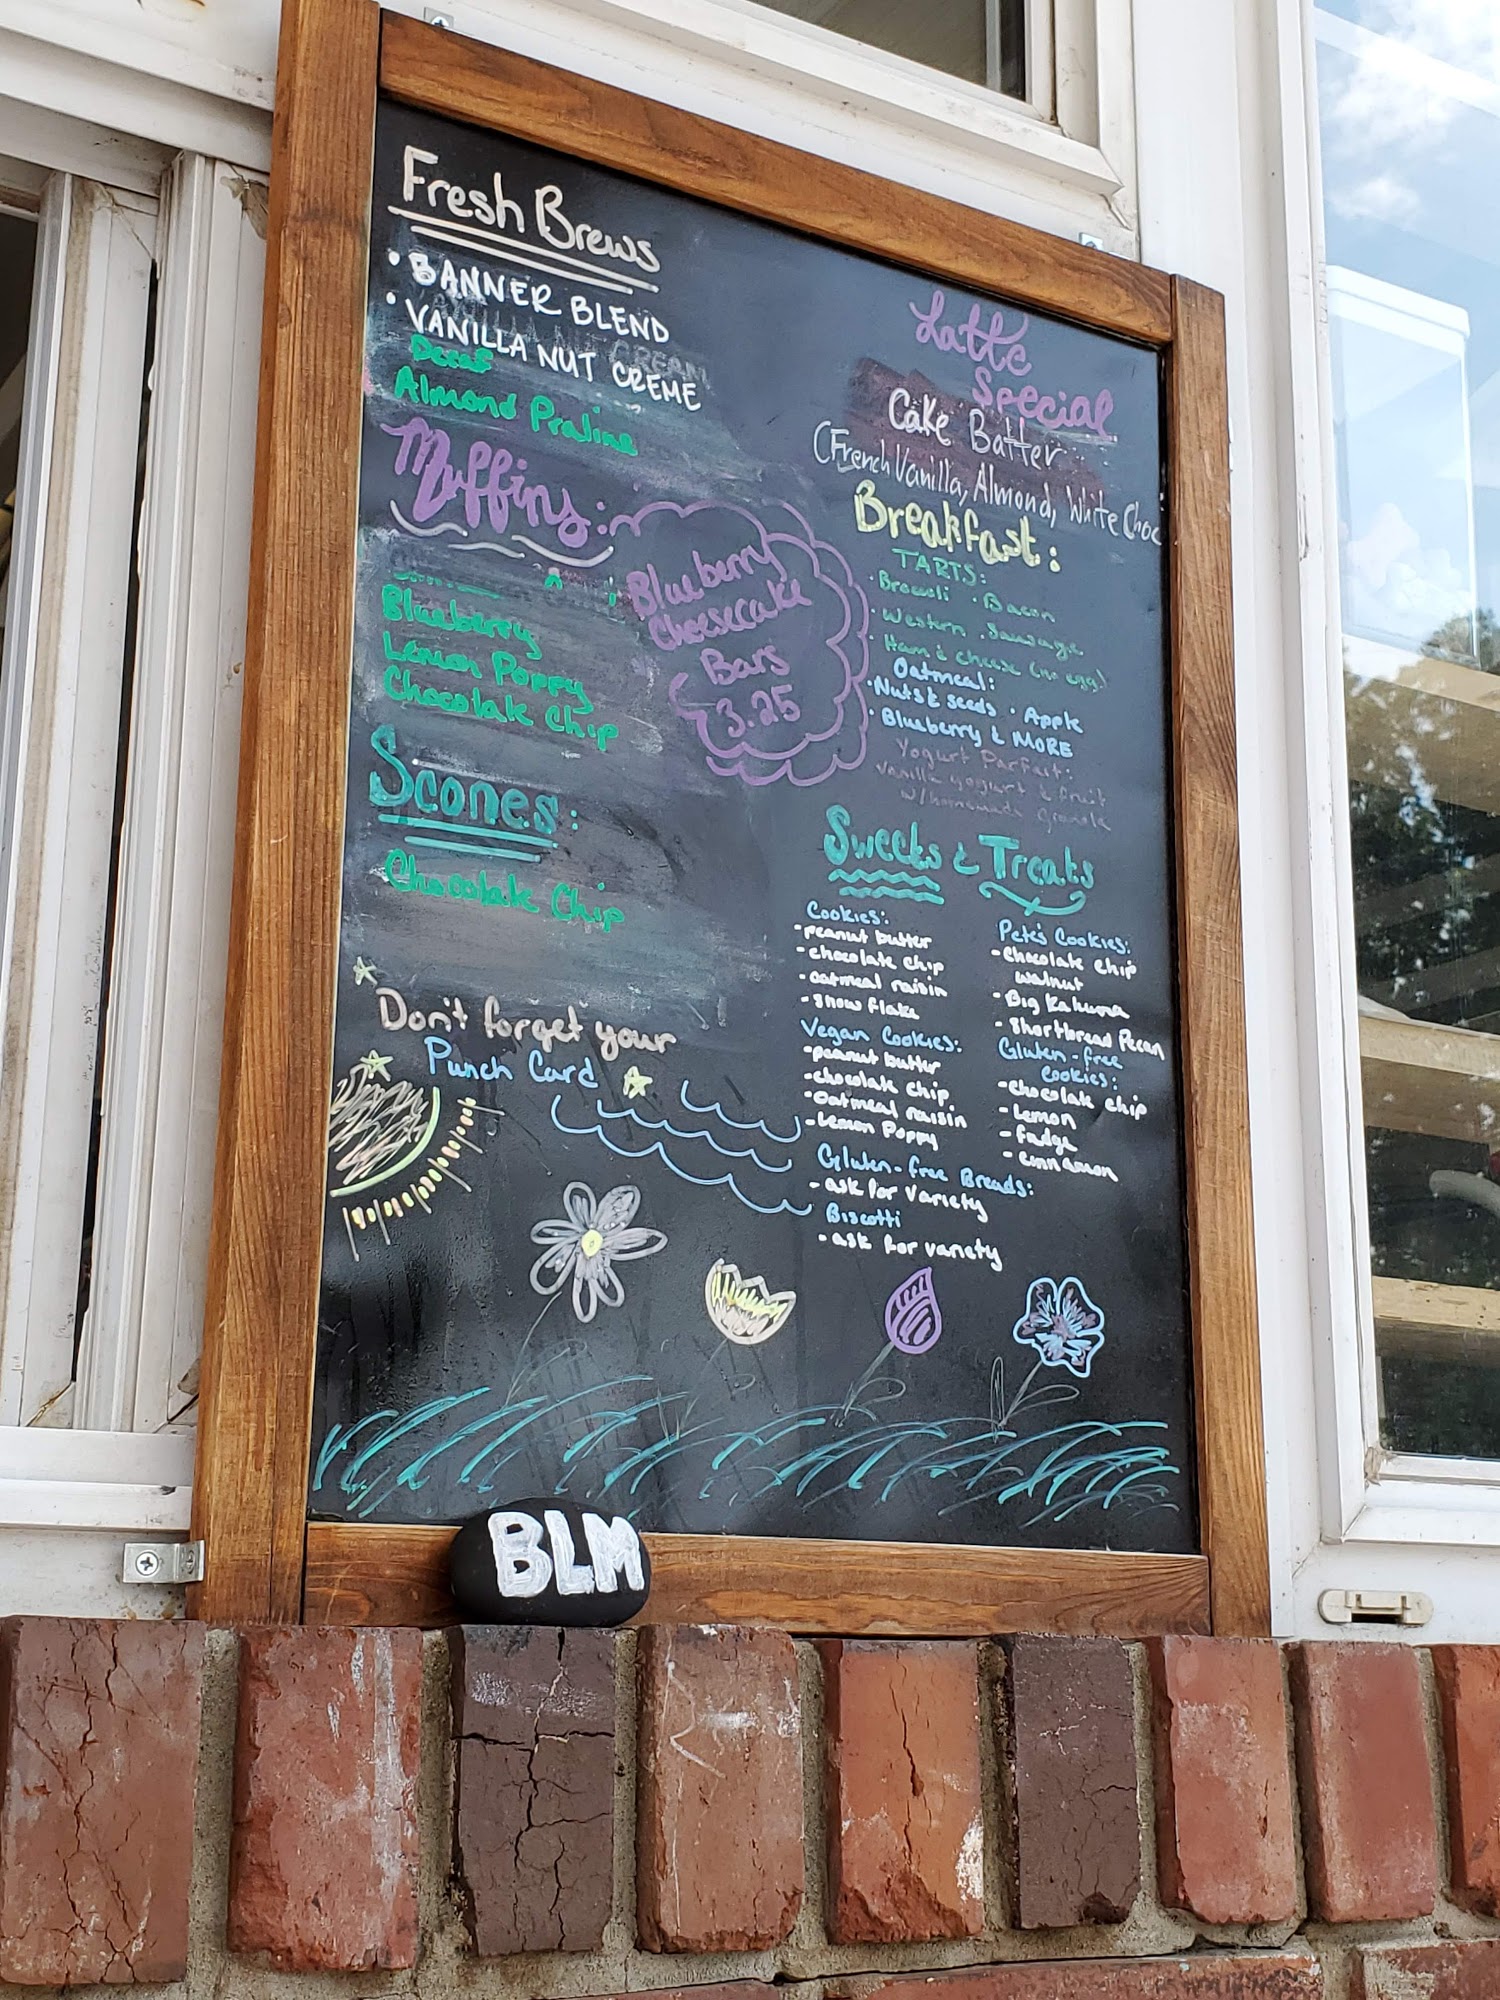 Fresh Brews
• BANNER BLEND
• VANILLA NUT CREME
Decaf
Almond Praline
Muffins:
Blueberry
Lemon Poppy
Chocolate Chip
Blueberry
Cheesecake
Bars
3.25
Scones:
Chocolate Chip
Don't forget your
Punch Card
Latte
Special
Cake Batter
(French Vanilla, Almond, White Choc
Breakfast:
TARTS:
• Broccoli • Bacon
• Western • Sausage
• Ham & cheese (no egg)
Oatmeal:
• Nuts & seeds • Apple
• Blueberry & MORE
Yogurt Parfait:
Vanilla yogurt & fruit
w/homemade granola
Sweets & Treats
Cookies:
- peanut butter
- chocolate chip
- oatmeal raisin
- snow flake
Vegan Cookies:
- peanut butter
- chocolate chip
- oatmeal raisin
- Lemon Poppy
Gluten-free Breads:
- ask for variety
Biscotti
- ask for variety
Pete's Cookies:
- Chocolate chip
walnut
- Big Kahuna
- Shortbread Pecan
Gluten-free
Cookies:
- chocolate chip
- Lemon
- fudge
- cinnamon
BLM